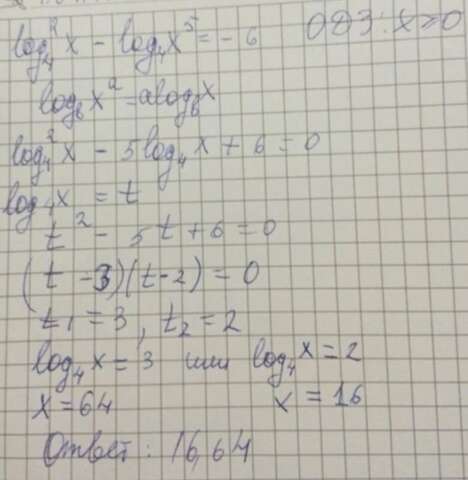 log₄²x - log₄x⁵ = -6 ОДЗ: x>0
log_b x^a = a log_b x
log₄²x - 5log₄x + 6 = 0
log₄x = t
t² - 5t + 6 = 0
(t - 3)(t - 2) = 0
t₁ = 3, t₂ = 2
log₄x = 3 или log₄x = 2
x = 64 x = 16
Ответ: 16, 64